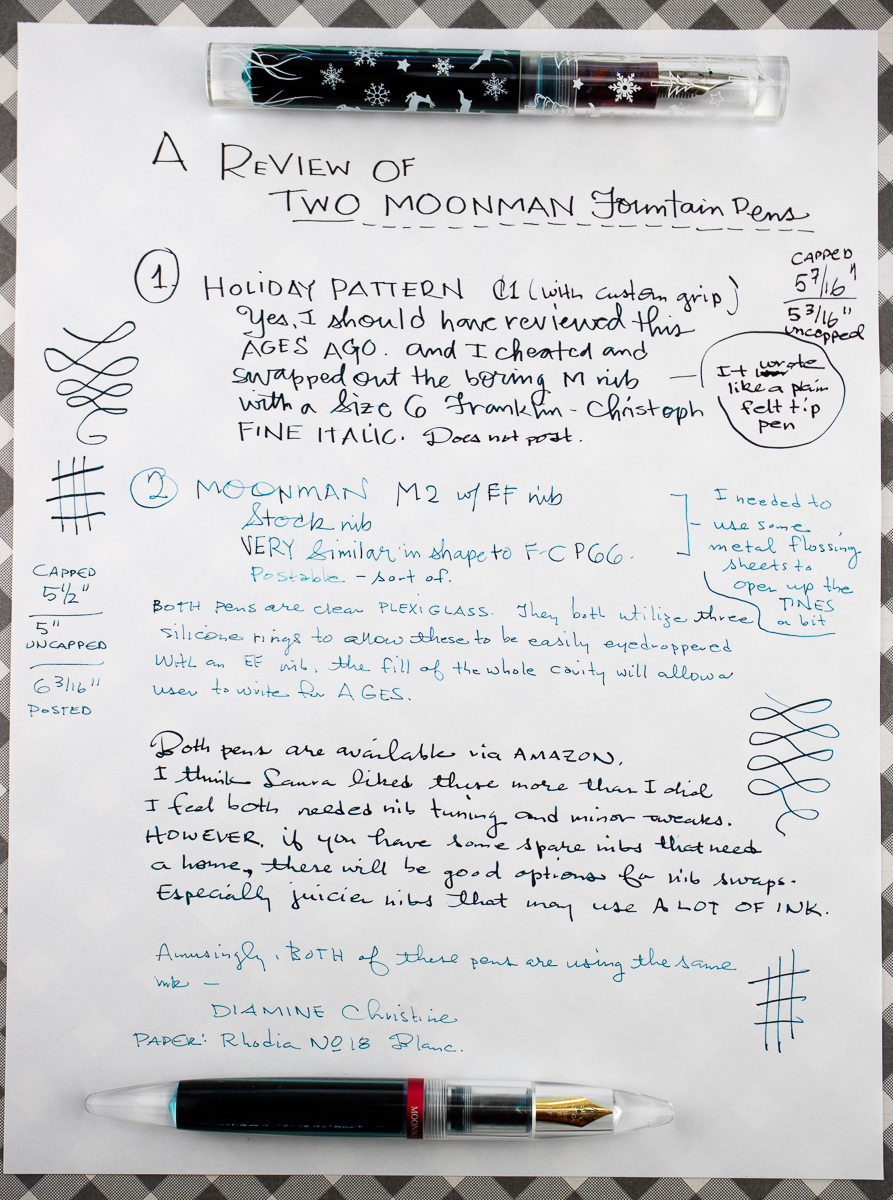 A REVIEW OF
TWO MOONMAN Fountain Pens
1. HOLIDAY PATTERN C1 (with custom grip)
Yes, I should have reviewed this
AGES AGO. and I cheated and
swapped out the boring M nib
with a Size 6 Franklin-Christoph
FINE ITALIC. Does not post.
CAPPED
5 7/16"
5 3/16"
uncapped
It wrote
like a plain
felt tip
pen
2 MOONMAN M2 w/ EF nib
Stock nib
VERY Similar in shape to F-C P66.
Postable - sort of.
I needed to
use some
metal flossing
sheets to
open up the
TINES
a bit
CAPPED
5 1/2"
5"
UNCAPPED
6 3/16"
POSTED
BOTH pens are clear PLEXIGLASS. They both utilize three
silicone rings to allow these to be easily eyedroppered
With an EF nib, the fill of the whole cavity will allow a
user to write for AGES.
Both pens are available via AMAZON.
I think Laura liked these more than I did
I feel both needed nib tuning and minor tweaks.
HOWEVER, if you have some spare nibs that need
a home, these will be good options for nib swaps.
Especially juicier nibs that may use A LOT OF INK.
Amusingly, BOTH of these pens are using the same
ink -
DIAMINE Christine
PAPER: Rhodia No 18 Blanc.
MOONM